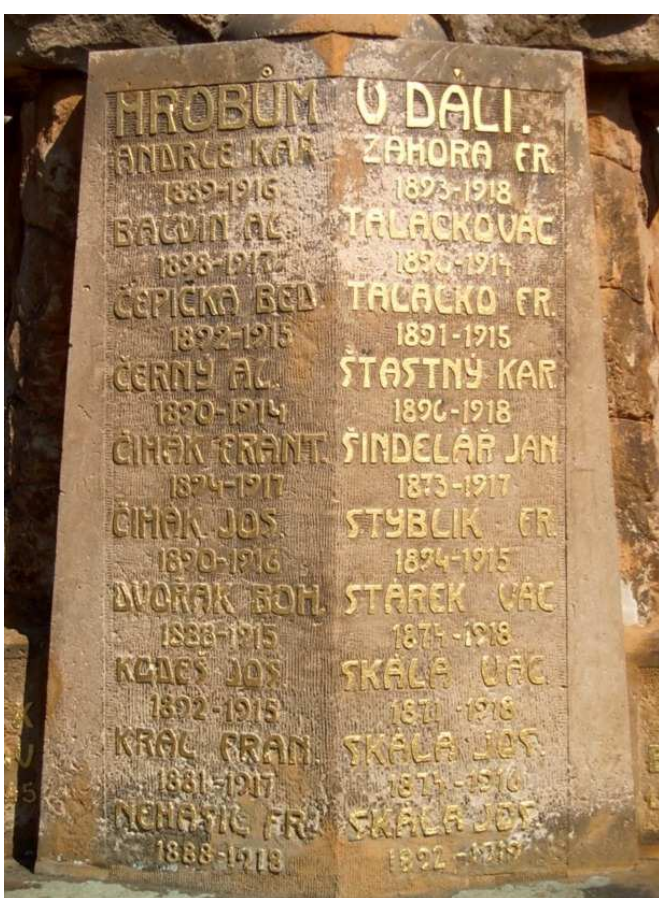 HROBŮM V DÁLI.
ANDRLE KAR.
1889-1916
AL.
ČEPIČKA BED.
1892-1915
ČERNÝ AL.
1890-1914
ČIHÁK FRANT.
1894-1917
ČIHÁK JOS.
1890-1916
DVOŘÁK BOH.
1888-1915
KUDEŠ JOS.
1892-1915
KRÁL FRAN.
1881-1917
FR.
1888-1918
ZÁHORA FR.
1893-1918
TALACKO VÁC
1896-1914
TALACKO FR.
1891-1915
ŠTASTNÝ KAR.
1896-1918
ŠINDELÁŘ JAN.
1873-1917
STYBLIK FR.
1894-1915
STÁREK VÁC
1874-1918
SKÁLA VÁC.
1871-1918
SKÁLA JOS.
1874-1916
SKÁLA JOS.